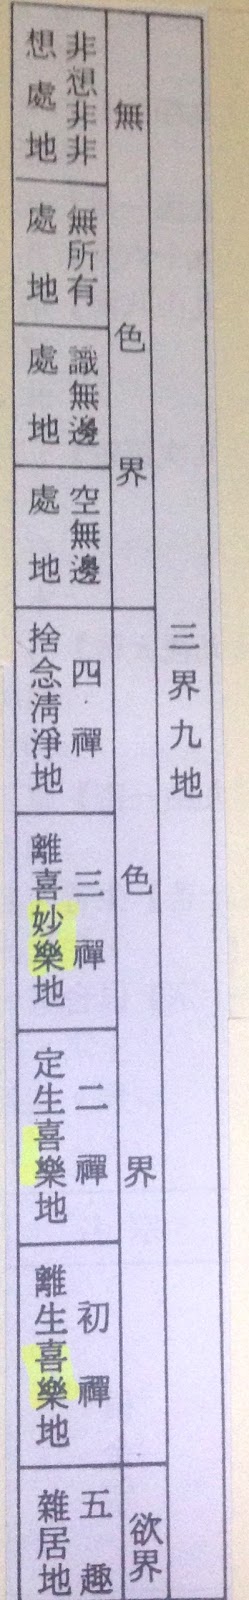 三界九地
無色界
非想非非
想處地
無所有
處地
識無邊
處地
空無邊
處地
色界
四禪
捨念清淨地
三禪
離喜妙樂地
二禪
定生喜樂地
初禪
離生喜樂地
欲界
五趣
雜居地